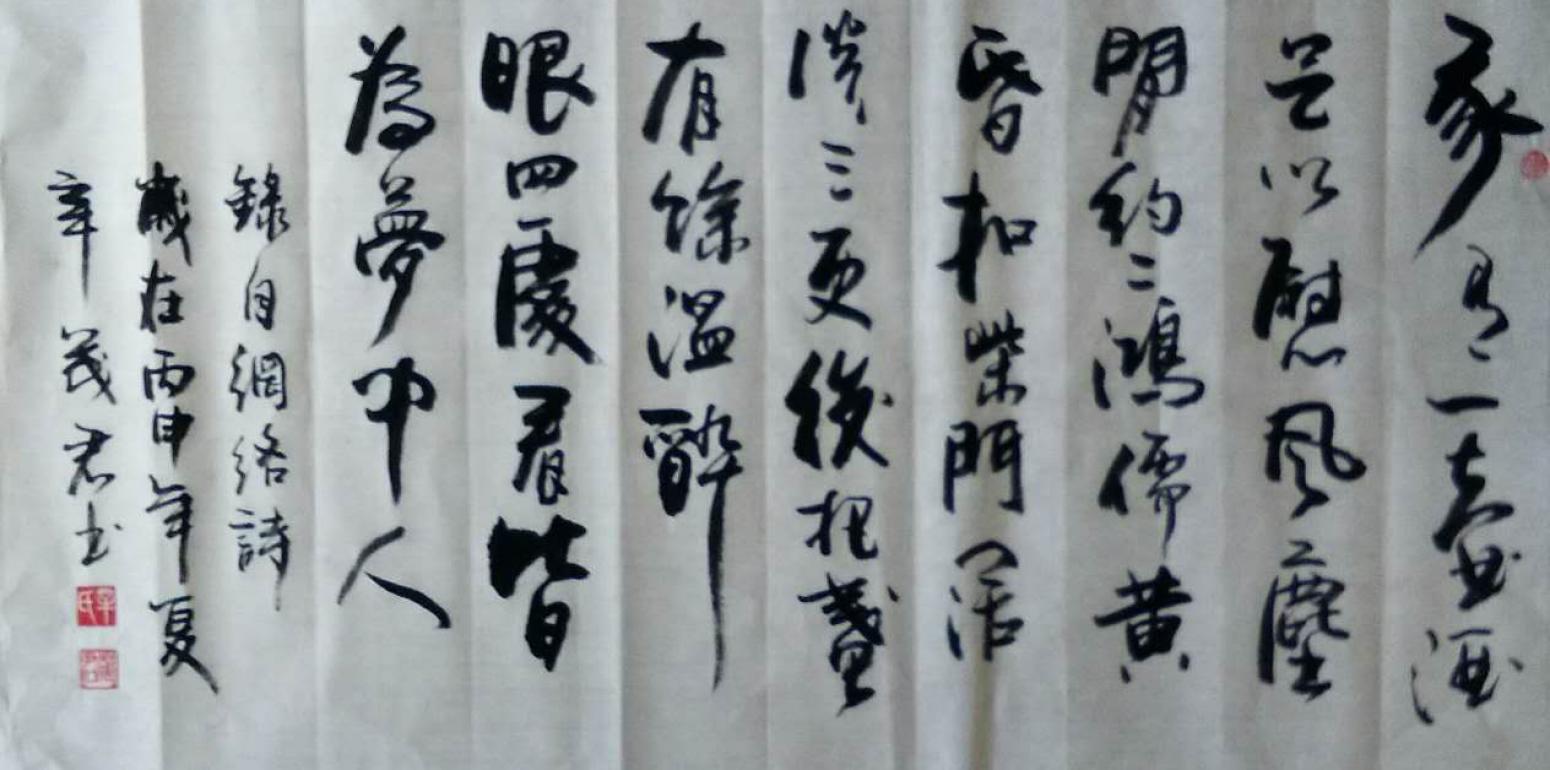 家有一壺酒
足以慰風塵
閒約二鴻儒黃
昏扣柴門 閒話
談三更後把盞
有餘溫醉
眼四處看皆
為夢中人
錄自網絡詩
歲在丙申年夏
辛茂君书